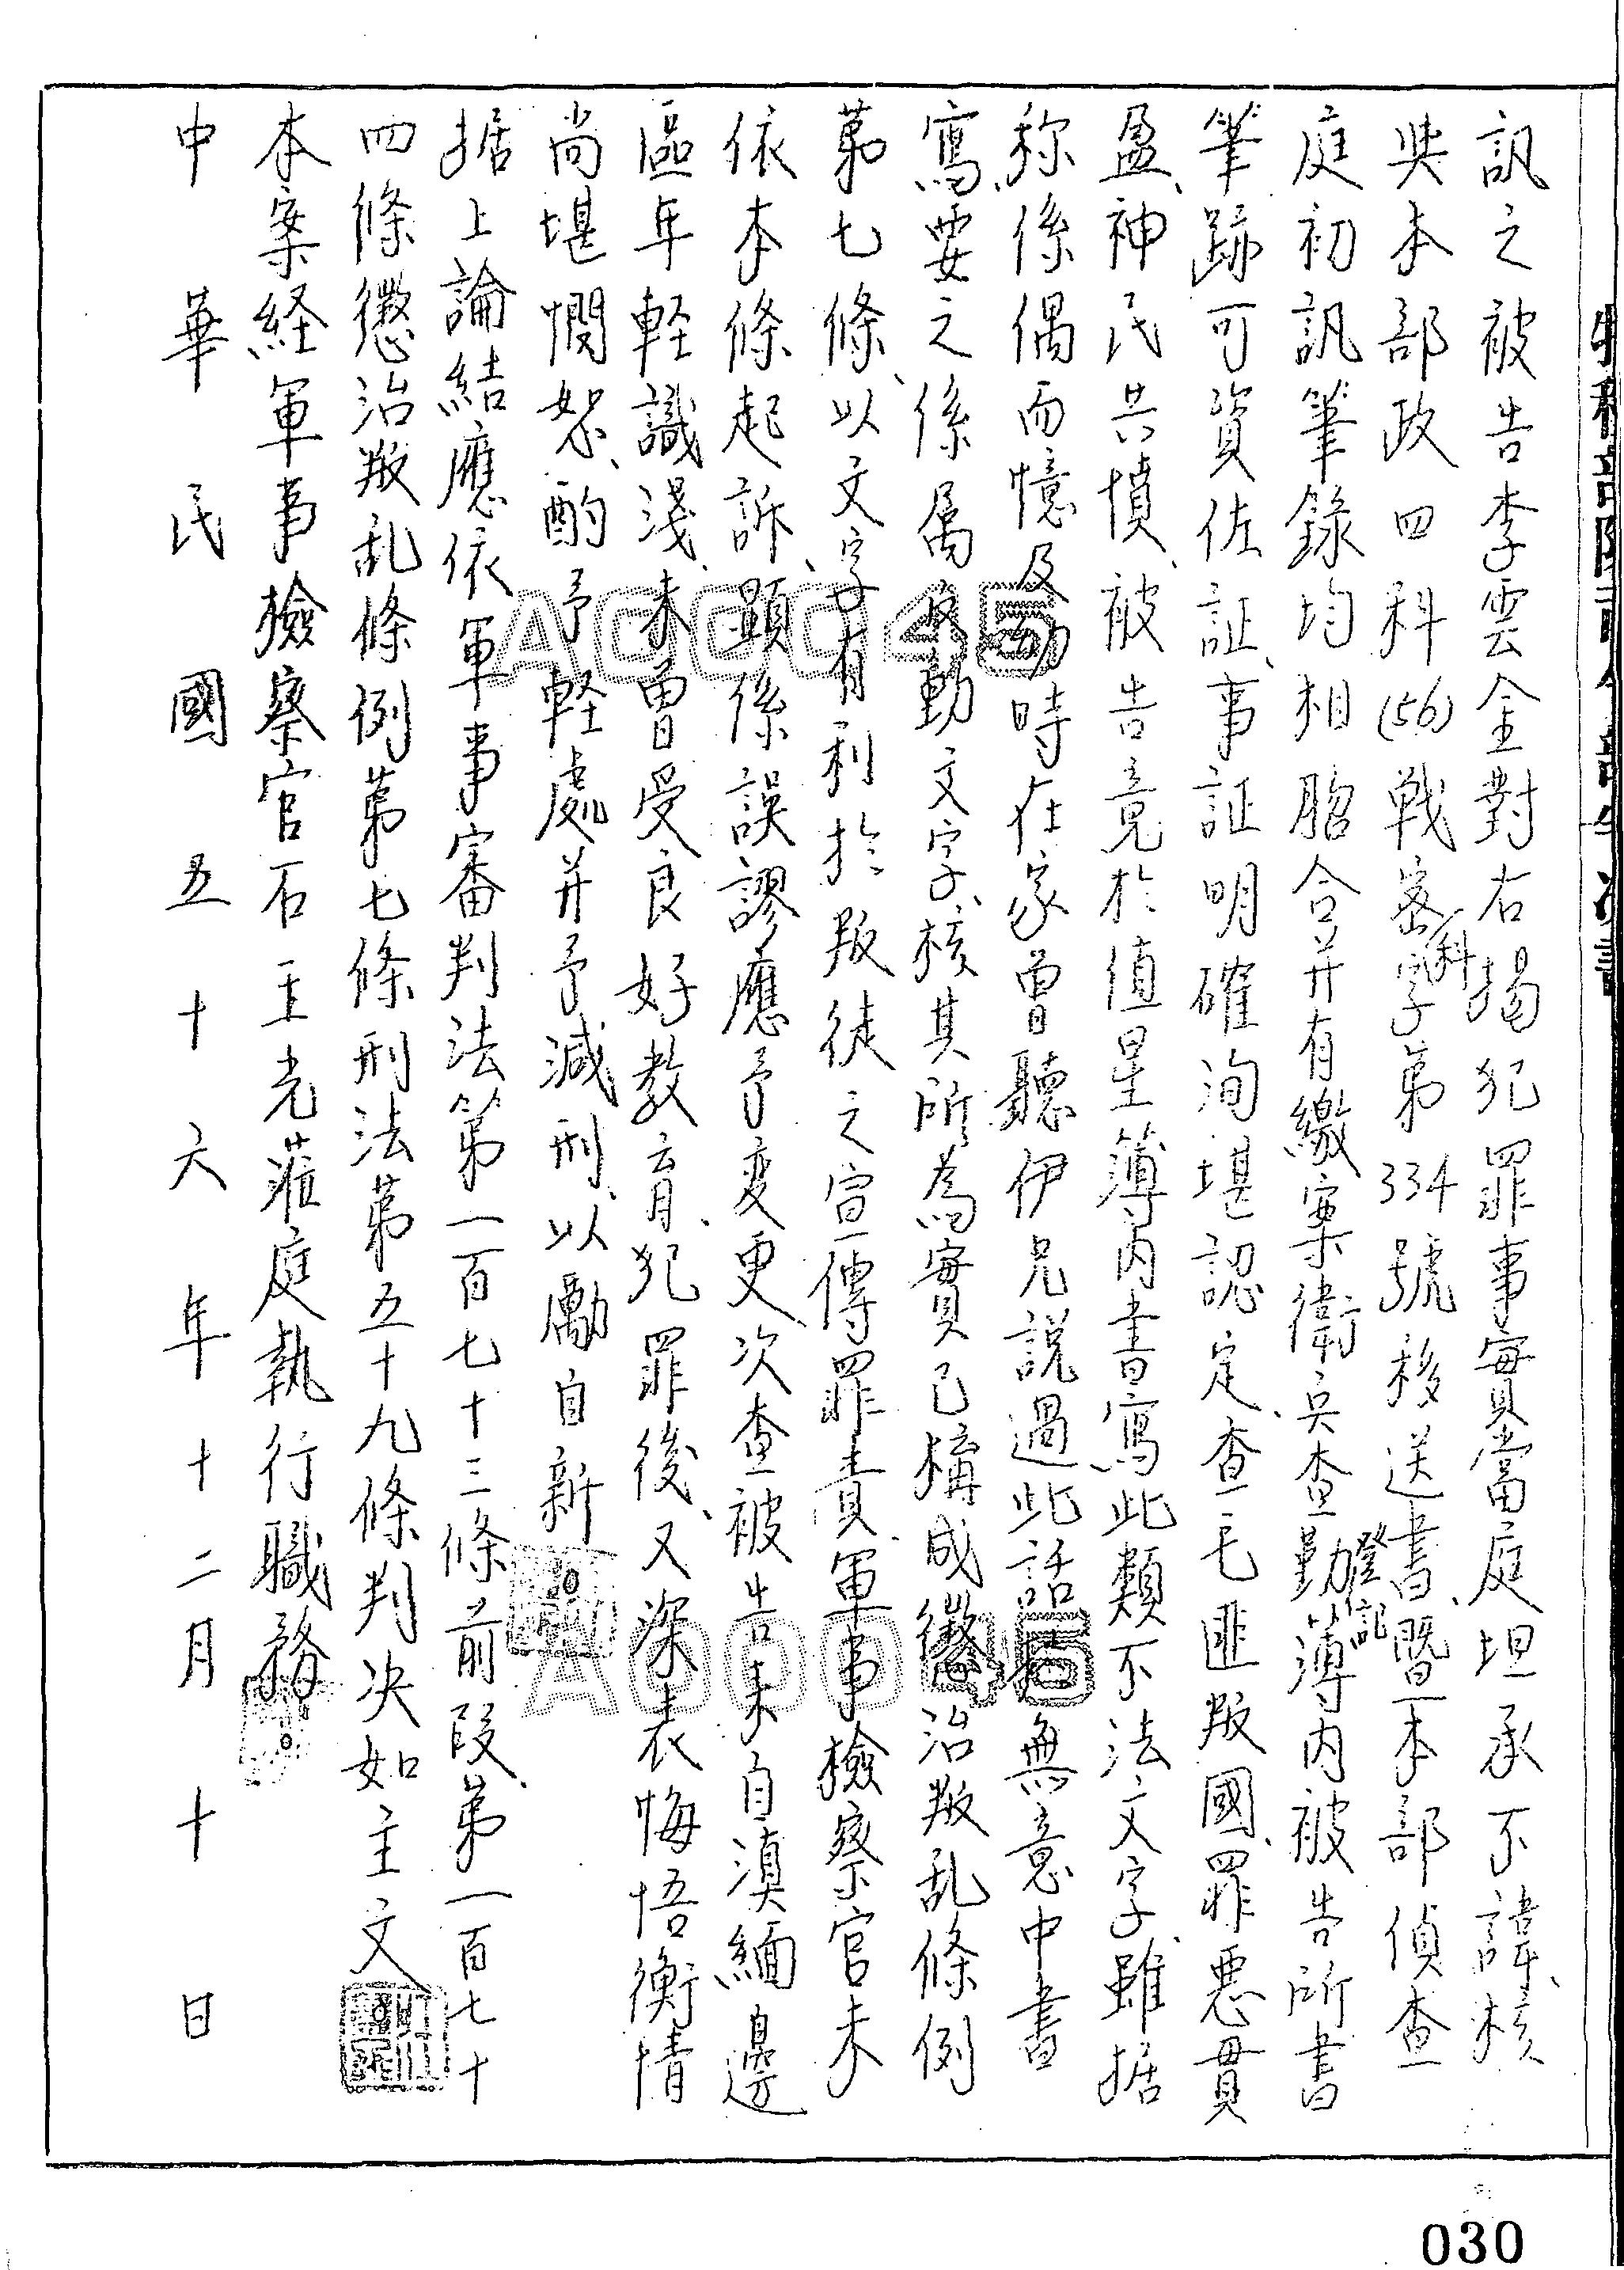 訊之被告李雲金對右揭犯罪事實當庭坦承不諱、核
與本部政四科(56)戰密科字第334號移送書、暨本部偵查
庭初訊筆錄均相脗合并有繳案衛兵查勤登記簿內被告所書
筆跡可資佐証、事証明確洵堪認定、查毛匪叛國、罪惡貫
盈、神民共憤、被告竟於值星簿內書寫此類不法文字、雖据
称係偶而憶及幼時在家曾聽伊兄說過此話於無意中書
寫、要之係屬反動文字、核其所為實已構成懲治叛乱條例
第七條、以文字有利於叛徒之宣傳罪責、軍事檢察官未
依本條起訴、顯係誤謬應予变更、次查被告來自滇緬邊
區年軽識淺、未曾受良好教育、犯罪後、又深表悔悟衡情
尚堪憫恕、酌予軽處并予減刑、以勵自新
据上論結應依軍事審判法第一百七十三條前段、第一百七十
四條懲治叛乱條例第七條刑法第五十九條判決如主文
本案経軍事檢察官石主光蒞庭執行職務
中華民國五十六年十二月十日
030
ACCC45
A00045